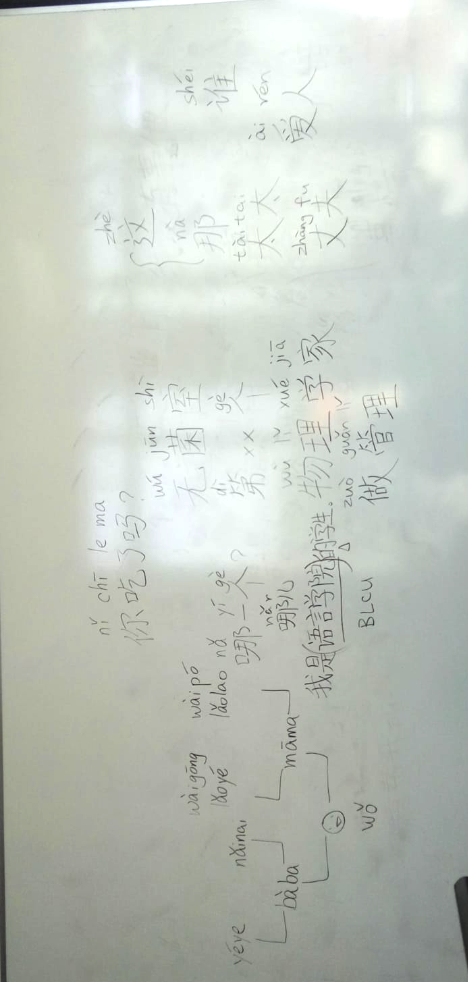 nǐ chī le ma
你吃了吗?
zhè
这
nà
那
shéi
谁
wú jūn shì
无菌室
wàigōng wàipó
lǎoyé lǎolao
yéye nǎinai
nǎ yí gè
哪一个?
dì gè
第××个
tàitai
太太
ài rén
爱人
bàba māma
nǎr
哪儿
wù lǐ xué jiā
物理学家
zhàng fu
丈夫
我是(语言学院)的学生.
zuò guǎn lǐ
做管理
BLCU
wǒ